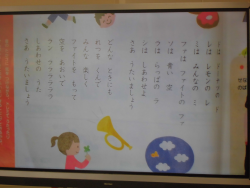 ドは ドーナツの ド
レは レモンの レ
ミは みんなの ミ
ファは ファイトの ファ
ソは 青い 空
ラは らっぱの ラ
シは しあわせよ
さあ うたいましょう
どんな ときにも
れつを くんで
みんな 楽しく
ファイトを もって
空を あおいで
ラン ララララララ
しあわせの うた
さあ うたいましょう